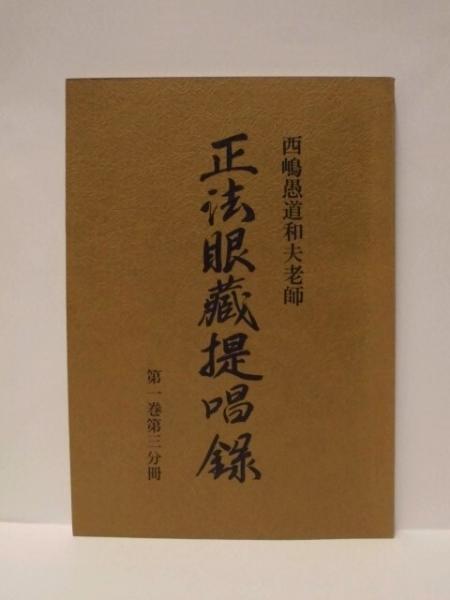 西嶋愚道和夫老師
正法眼藏提唱録
第一巻第三分冊